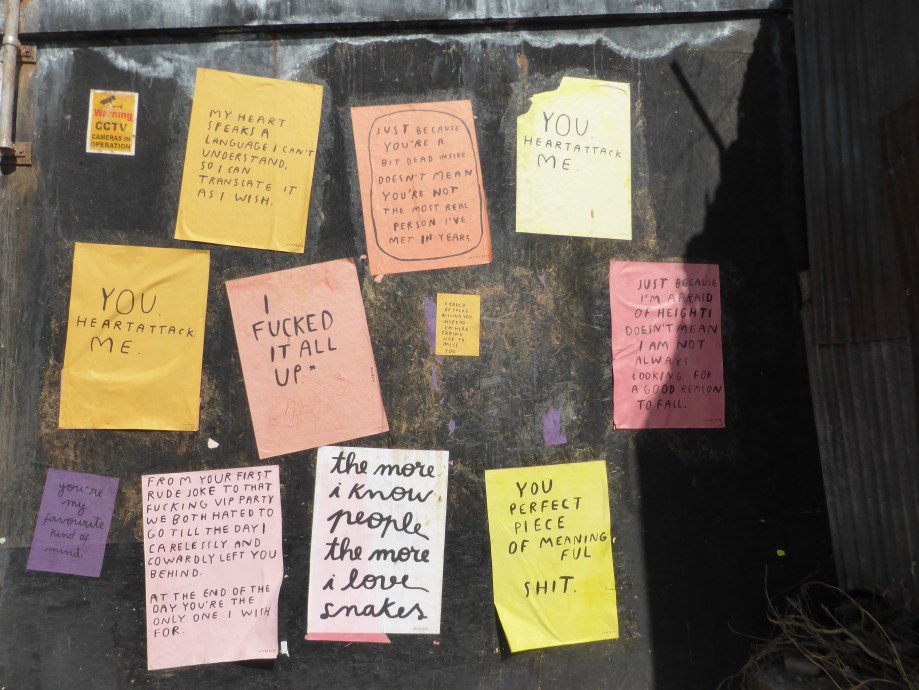 Warning
CCTV
CAMERAS IN
OPERATION
MY HEART
SPEAKS A
LANGUAGE I CAN'T
UNDERSTAND,
SO I CAN
TRANSLATE IT
AS I WISH.
JUST BECAUSE
YOU'RE A
BIT DEAD INSIDE
DOESN'T MEAN
YOU'RE NOT
THE MOST REAL
PERSON I'VE
MET IN YEARS
YOU.
HEARTATTACK
ME.
YOU.
HEARTATTACK
ME.
I
FUCKED
IT ALL
UP.*
I COULD
BE FALLING
BEHIND YOU
INSTEAD
I'M HERE
TRYING
NOT TO
MISS
YOU
JUST BECAUSE
I'M AFRAID
OF HEIGHTS
DOESN'T MEAN
I AM NOT
ALWAYS
LOOKING FOR
A GOOD REASON
TO FALL.
you're
my
favourite
kind of
mind
FROM YOUR FIRST
RUDE JOKE TO THAT
FUCKING VIP PARTY
WE BOTH HATED TO
GO TILL THE DAY I
CARELESSLY AND
COWARDLY LEFT YOU
BEHIND.
AT THE END OF THE
DAY YOU'RE THE
ONLY ONE I WISH
FOR.
the more
i know
people
the more
i love
snakes
YOU
PERFECT
PIECE
OF MEANING
FUL
SHIT.